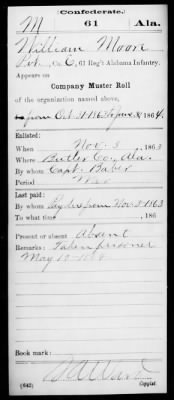 Confederate.
M 61 Ala.
William Moon
Pvt, Co. C, 61 Reg't Alabama Infantry.
Appears on
Company Muster Roll
of the organization named above,
from Oct 31 1863 to June 30 1864.
Enlisted:
When Nov. 3, 1863
Where Butler Co. Ala.
By whom Capt. Baber
Period War
Last paid:
By whom from Nov. 3 1863
To what time , 186
Present or absent Absent
Remarks: Taken prisoner
May 10 1864
Book mark:
(642) Copyist.